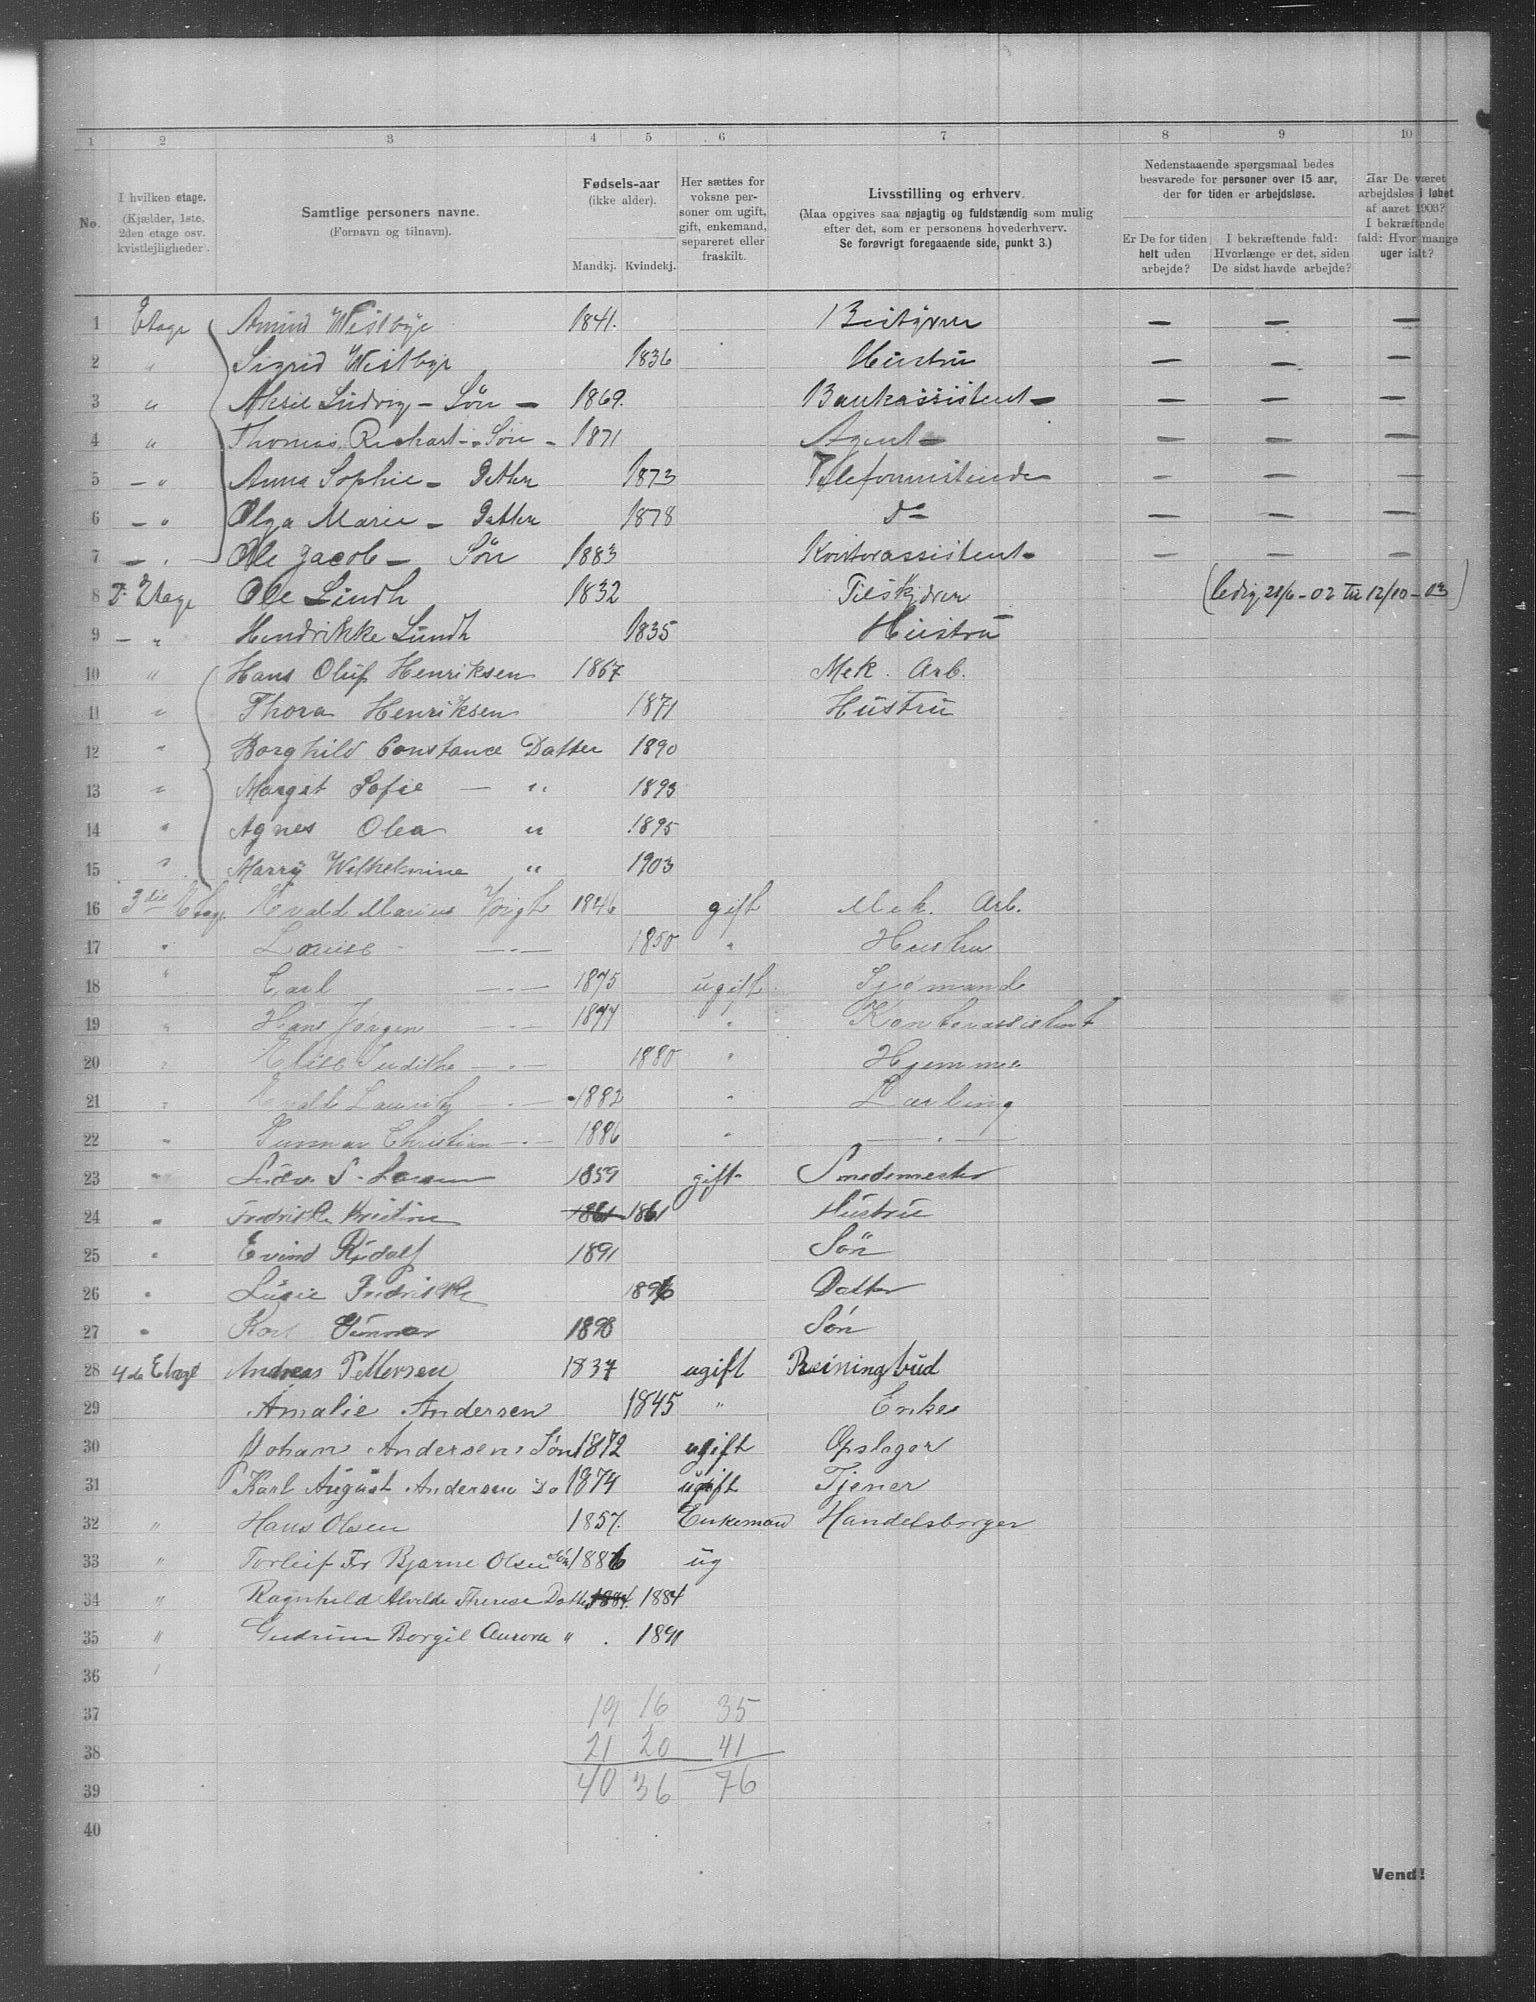 1 2 3 4 5 6 7 8 9 10
No.
I hvilken etage.
(Kjælder, 1ste, 2den etage osv. kvistlejligheder).
Samtlige personers navne.
(Fornavn og tilnavn).
Fødsels-aar
(ikke alder).
Mandkj. Kvindekj.
Her sættes for voksne personer om ugift, gift, enkemand, separeret eller fraskilt.
Livsstilling og erhverv.
(Maa opgives saa nøjagtig og fuldstændig som mulig efter det, som er personens hovederhverv.
Se forøvrigt foregaaende side, punkt 3.)
Nedenstaaende spørgsmaal bedes besvarede for personer over 15 aar, der for tiden er arbejdsløse.
Er De for tiden helt uden arbejde?
I bekræftende fald: Hvorlænge er det, siden De sidst havde arbejde?
Har De været arbejdsløs i løbet af aaret 1903? I bekræftende fald: Hvor mange uger ialt?
1 Etage Amund Westbye 1841. Bestyrer — — —
2 " Sigrid Westbye 1836 Hustru — — —
3 " Aksel Ludvig – Søn – 1869. Bankassistent – — — —
4 " Thomas Richart – Søn – 1871 Agent – — — —
5 – " Anna Sophie – Datter 1873 Telefonistinde — — —
6 – " Olga Marie – Datter 1878 Do — — —
7 – " Ole Jacob – Søn 1883 Kontorassistent – — — —
8 2. Etage Ole Lundh 1832 Tilskjærer (ledig 21/6 – 02 til 12/10 – 03)
9 – " Hendrikke Lundh 1835 Hustru
10 " Hans Oluf Henriksen 1867 Mek. Arb.
11 " Thora Henriksen 1871 Hustru
12 " Borghild Constance Datter 1890
13 " Margit Sofie — " 1893
14 " Agnes Olea " 1895
15 " Marry Wilhelmine " 1903
16 3die Etage Evald Marius Voigt 1846 gift Mek. Arb.
17 " Louise — " — 1850 " Hustru
18 " Carl — " — 1875 ugift Sjømand
19 " Hans Jørgen — " — 1877 " Kontorassistent
20 " Elise Judithe — " — 1880 " Hjemme
21 " Evald Lauritz — " — 1882 " Lærling
22 " Gunnar Christian — " — 1886 " — " —
23 " S. Larsen 1859 gift Smedemester
24 " Fredrikke Kristine 1861 1861 Hustru
25 " Evind Rudolf 1891 Søn
26 " Lucie Fredrikke 1896 Datter
27 " Karl Gunnar 1898 Søn
28 4de Etage Andreas Pettersen 1837 ugift Reiningbud
29 Amalie Andersen 1845 " Enke
30 Johan Andersen Søn 1872 ugift Opslager
31 Karl August Andersen Do 1874 ugift Tjener
32 " Hans Olsen 1857. Enkemand Handelsborger
33 " Torleif Fr Bjarne Olsen Søn 1886 ug
34 " Ragnhild Alvilde Therese Datter 1884. 1884
35 " Gudrun Borgil Aurora " . 1891
36
37 19 16 35
38 21 20 41
39 40 36 76
40
Vend!